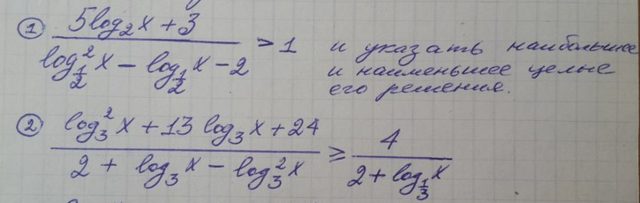 ① (5log₂x + 3) / (log²_{1/2} x − log_{1/2} x − 2) > 1 и указать наибольшее
и наименьшее целые
его решения.
② (log₃²x + 13 log₃x + 24) / (2 + log₃x − log₃²x) ≥ 4 / (2 + log_{1/3} x)